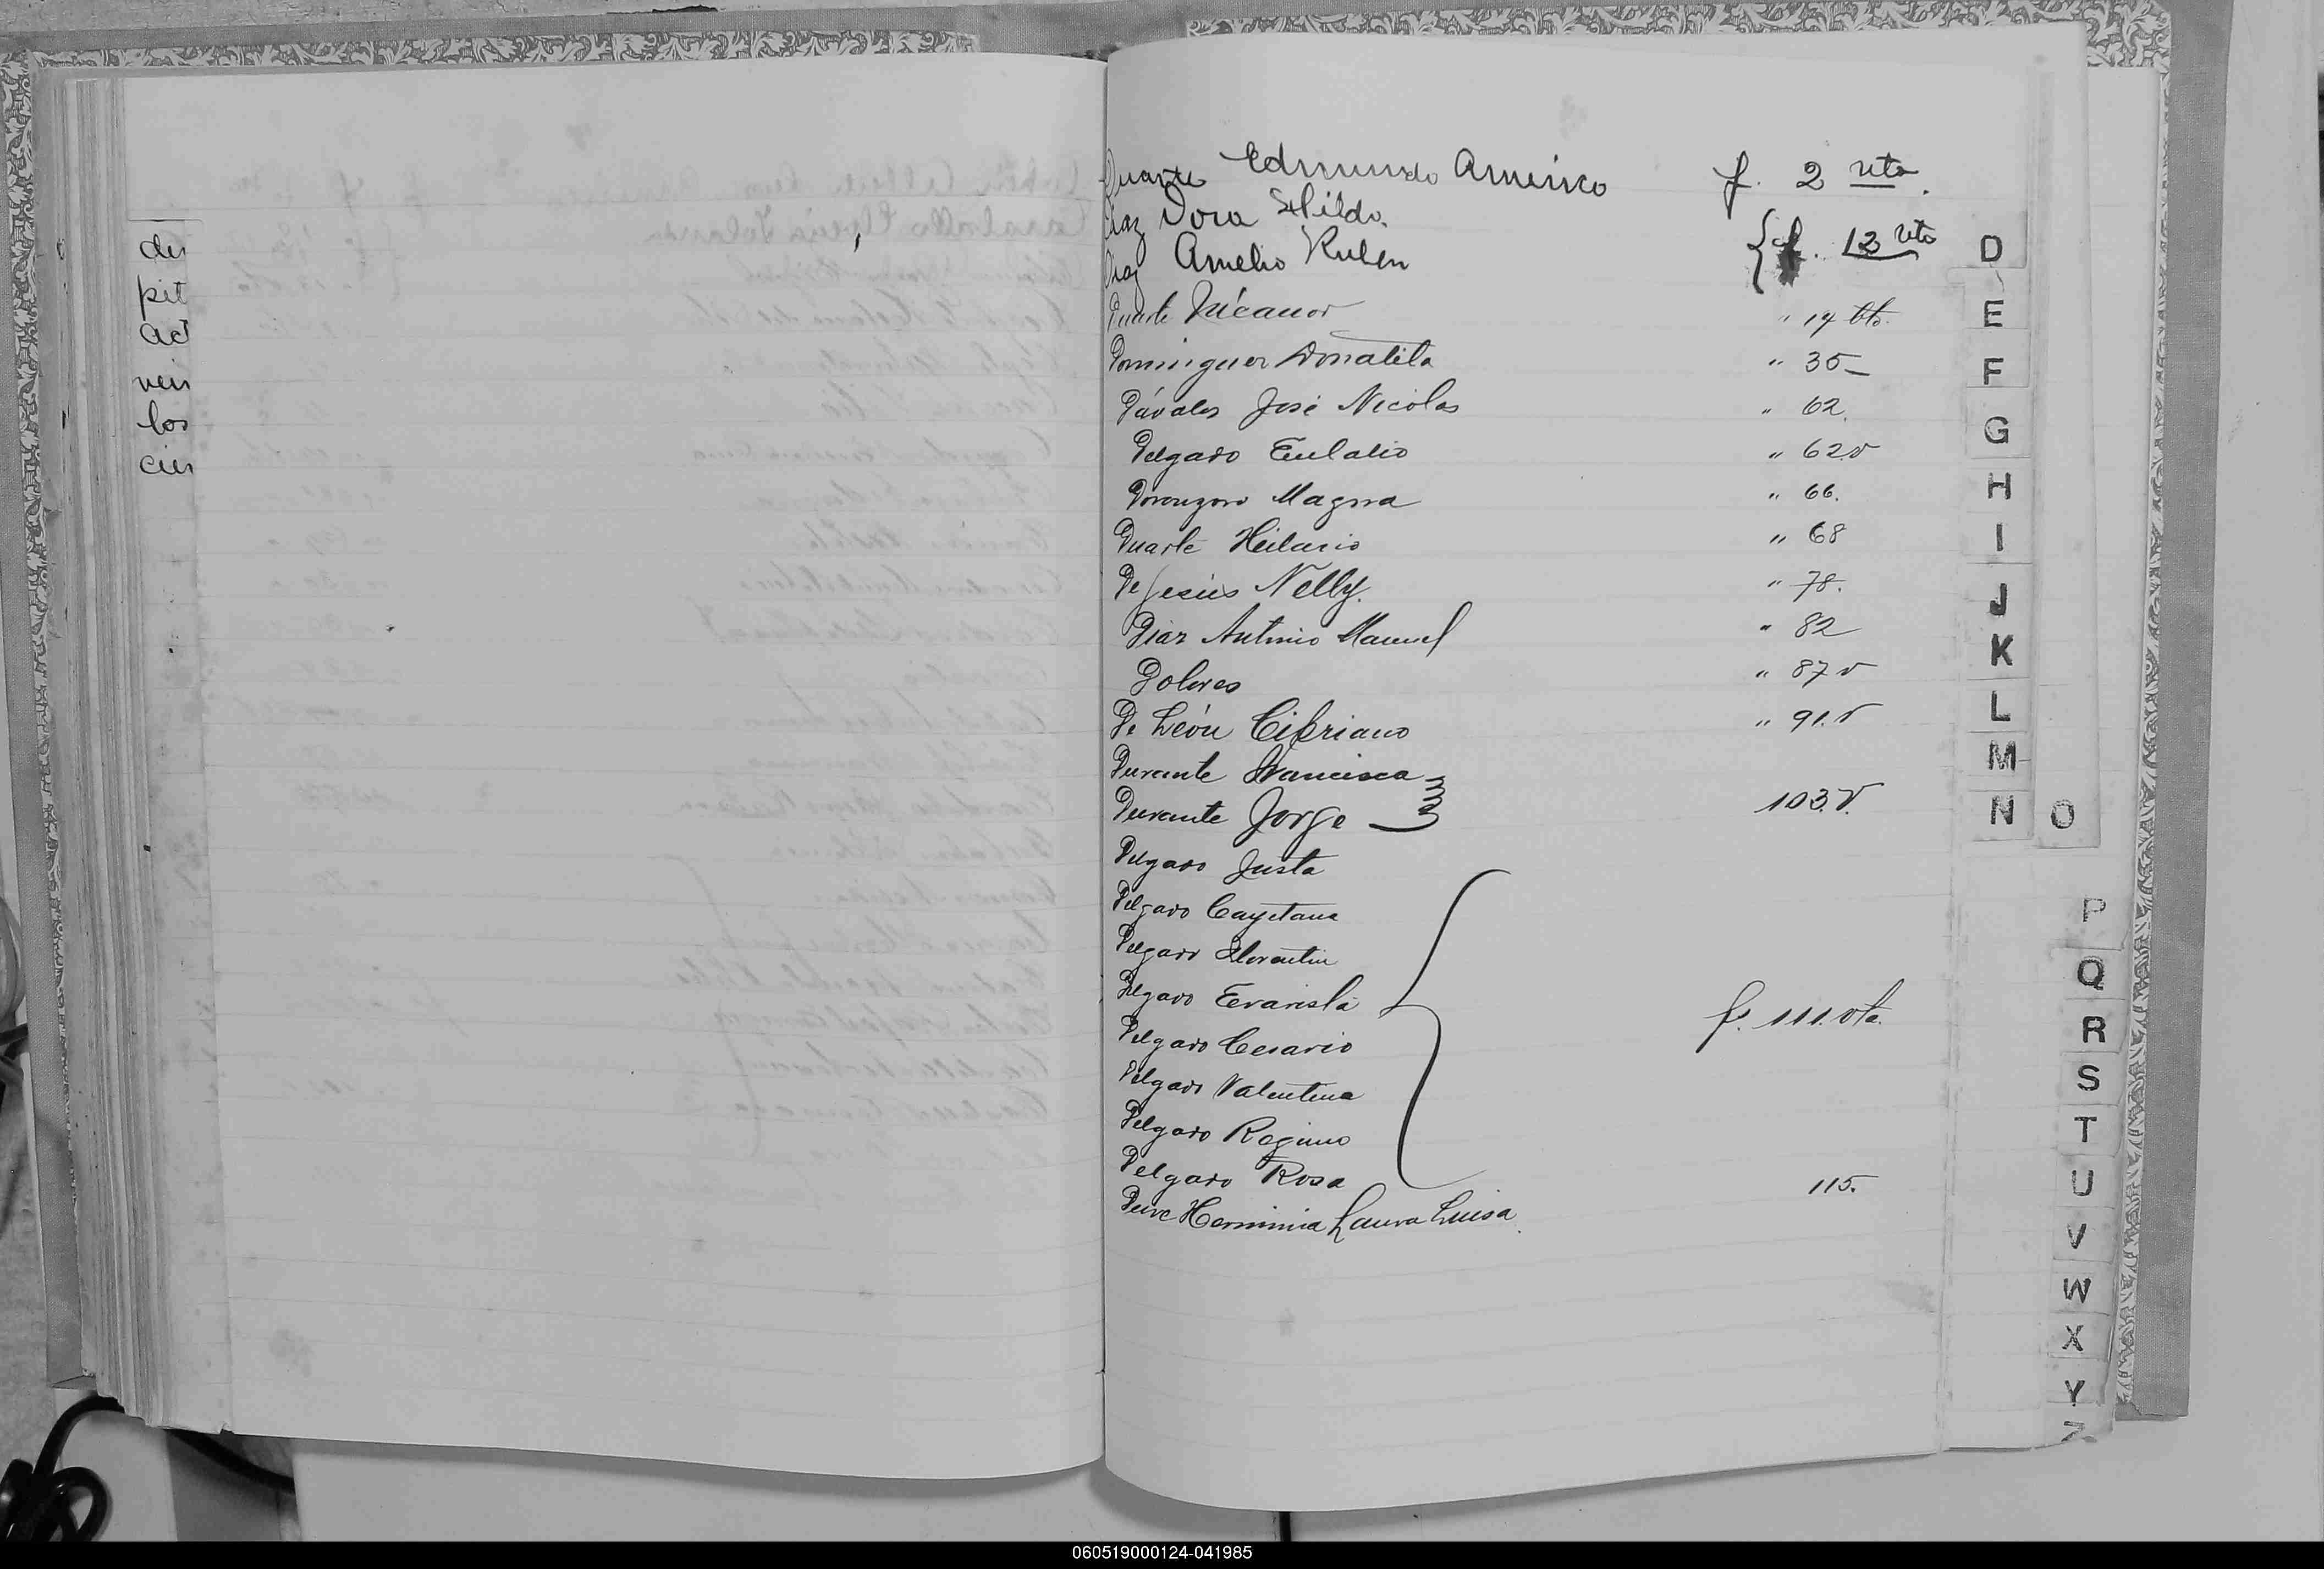 des
pit
act
ven
los
cier
Duarte Edmundo Americo f. 2 vto.
Diaz Dora Hilda
Diaz Amelio Ruben { f. 13 vto
Duarte Nicanor " 14 vto.
Dominguez Donatila " 35
Dávalos José Nicolas " 62.
Delgado Eulalio " 62 v
Doronzoro Magna " 66.
Duarte Hilario " 68
De Jesús Nelly. " 78.
Diaz Antonio Manuel " 82
Dolores " 87 v
De León Cipriano " 91. v
Durante Francisca
Durante Jorge 103. V.
Delgado Justa
Delgado Cayetana
Delgado Florentin
Delgado Evarista f. 111. vta.
Delgado Cesario
Delgado Valentina
Delgado Regino
Delgado Rosa
Herminia Laura Luisa 115.
D
E
F
G
H
I
J
K
L
M
N
O
P
Q
R
S
T
U
V
W
X
Y
Z
060519000124-041985